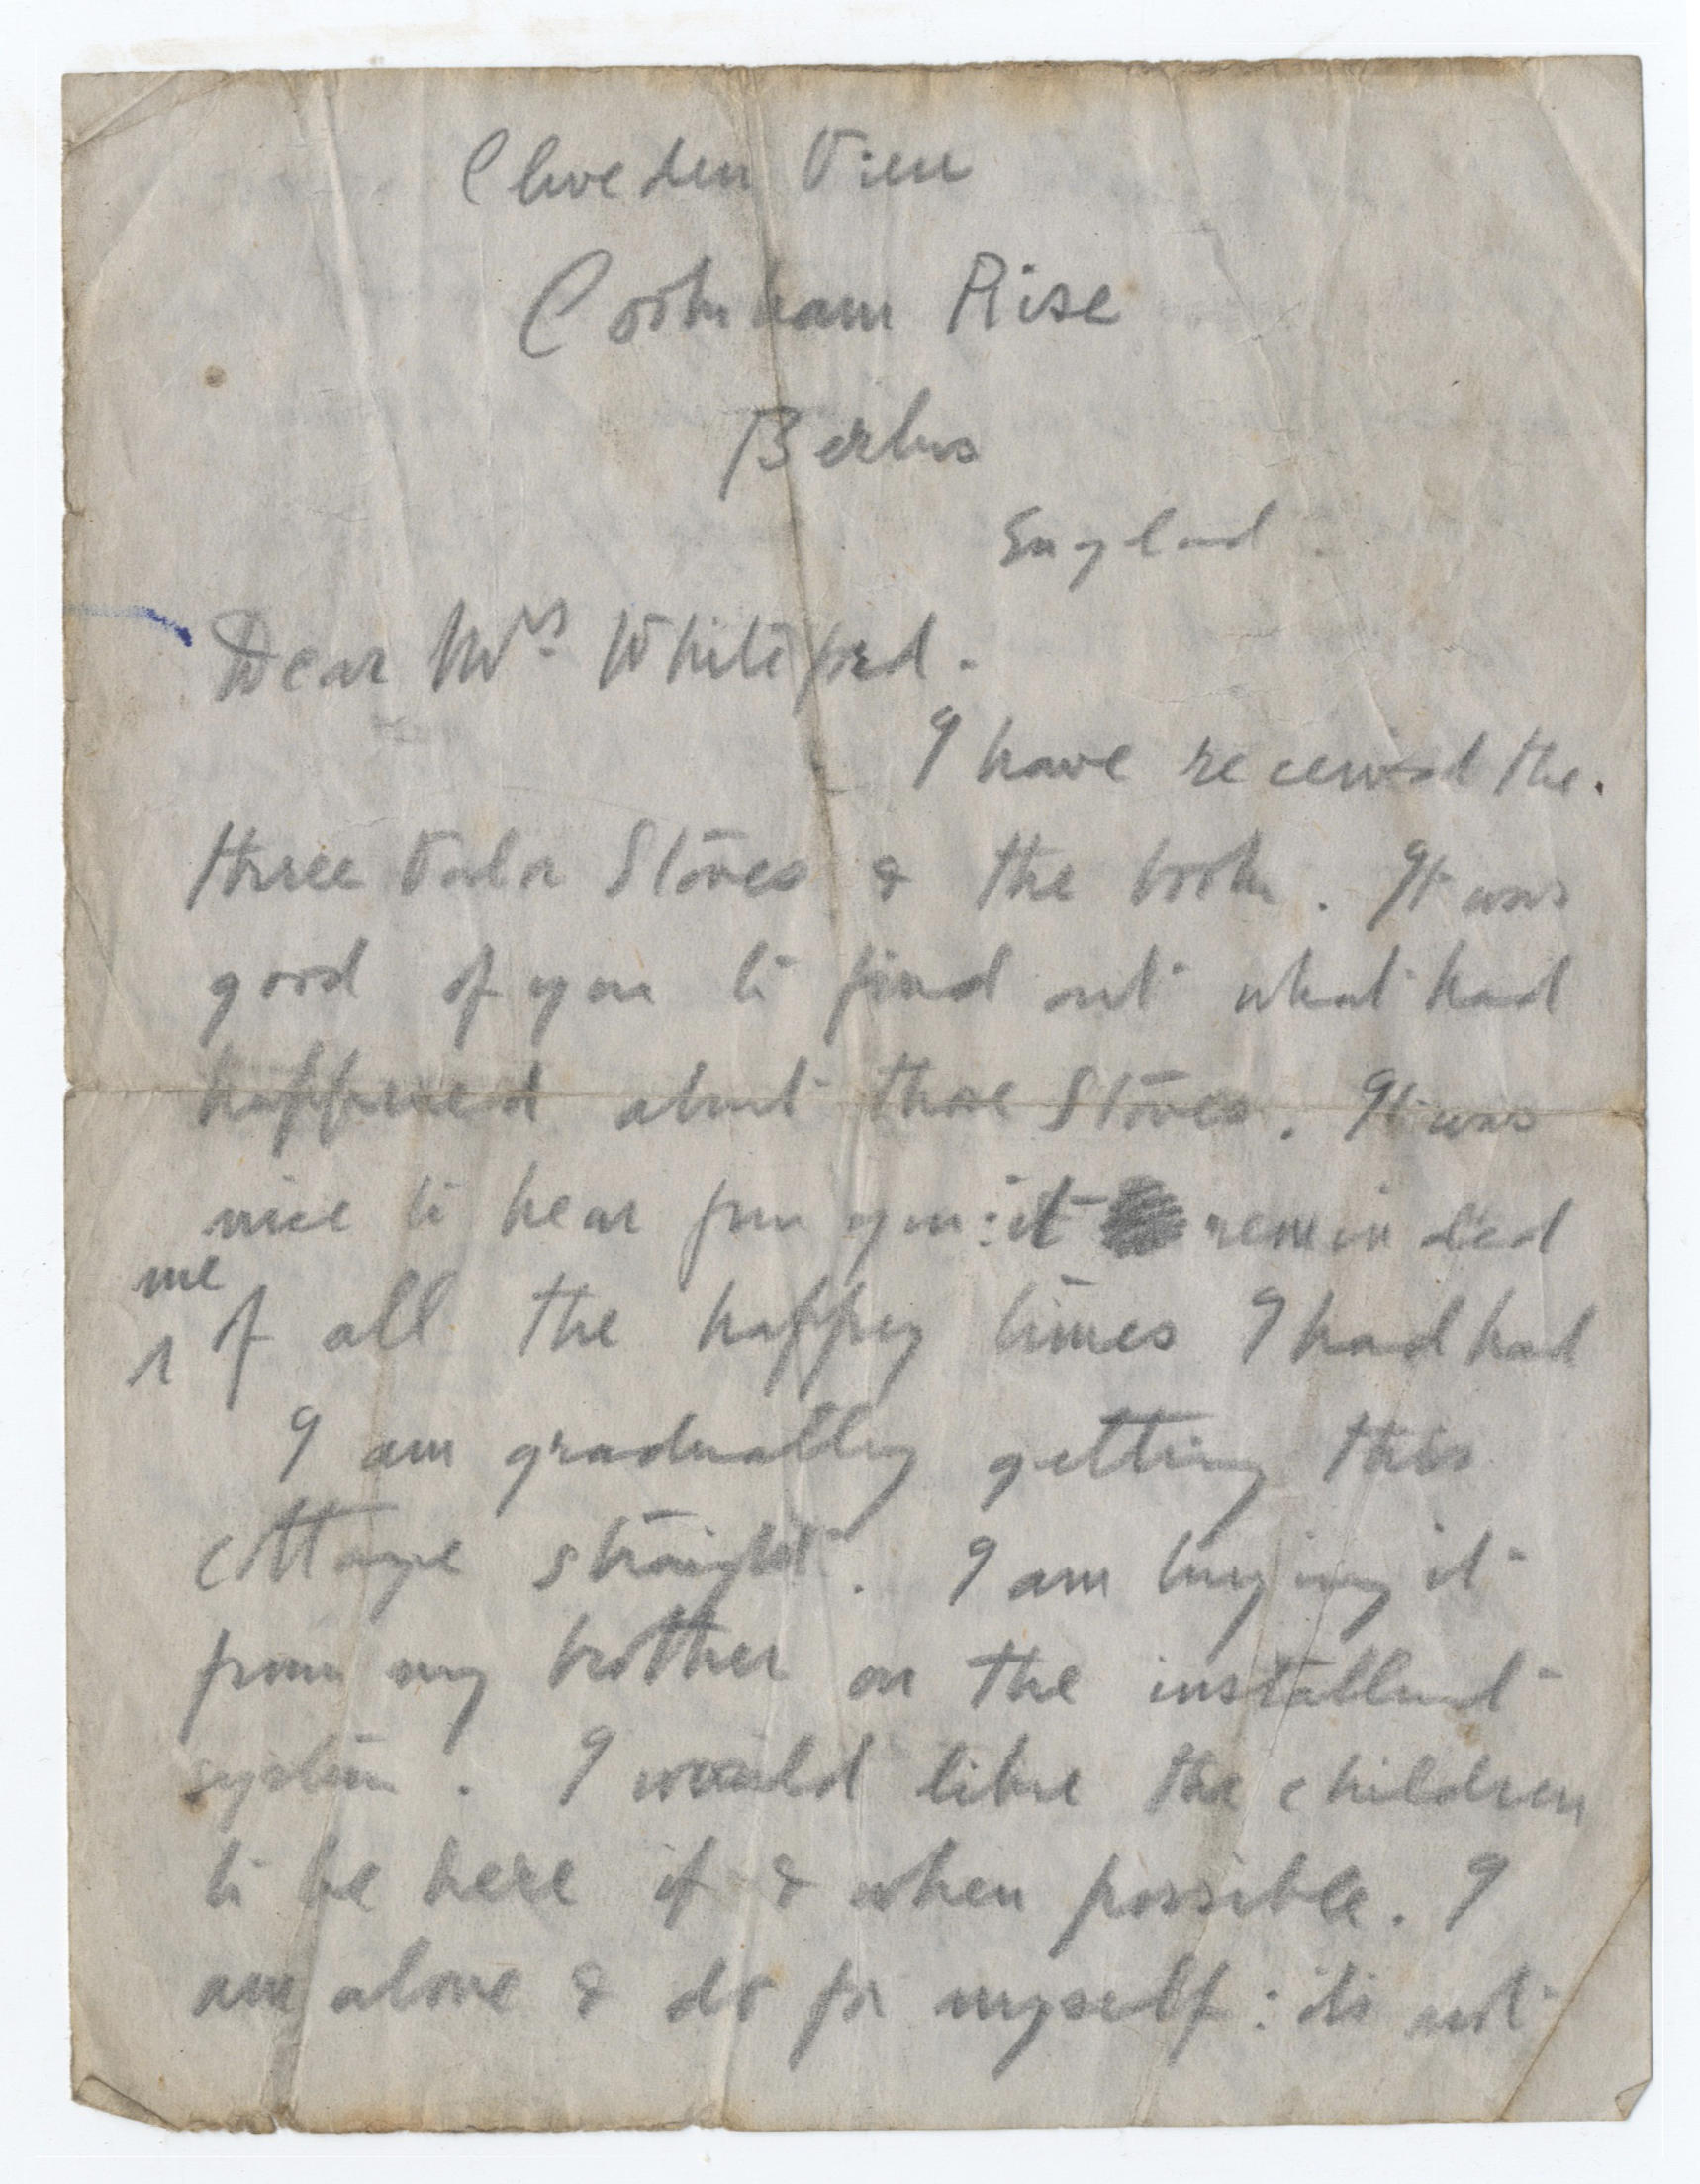 Cliveden View
Cookham Rise
Berks
England.
Dear Mrs Whiteford.
I have received the.
three Valor Stoves & the book. It was
good of you to find out what had
happened about those Stoves. It was
nice to hear from you: it reminded
me
of all the happy times I had had
I am gradually getting this
cottage straight. I am buying it
from my brother on the installment
system. I would like the children
to be here if & when possible. I
am alone & do for myself: its not